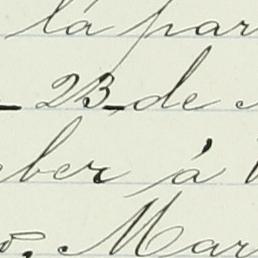 la par
23 de
ber á
Mar